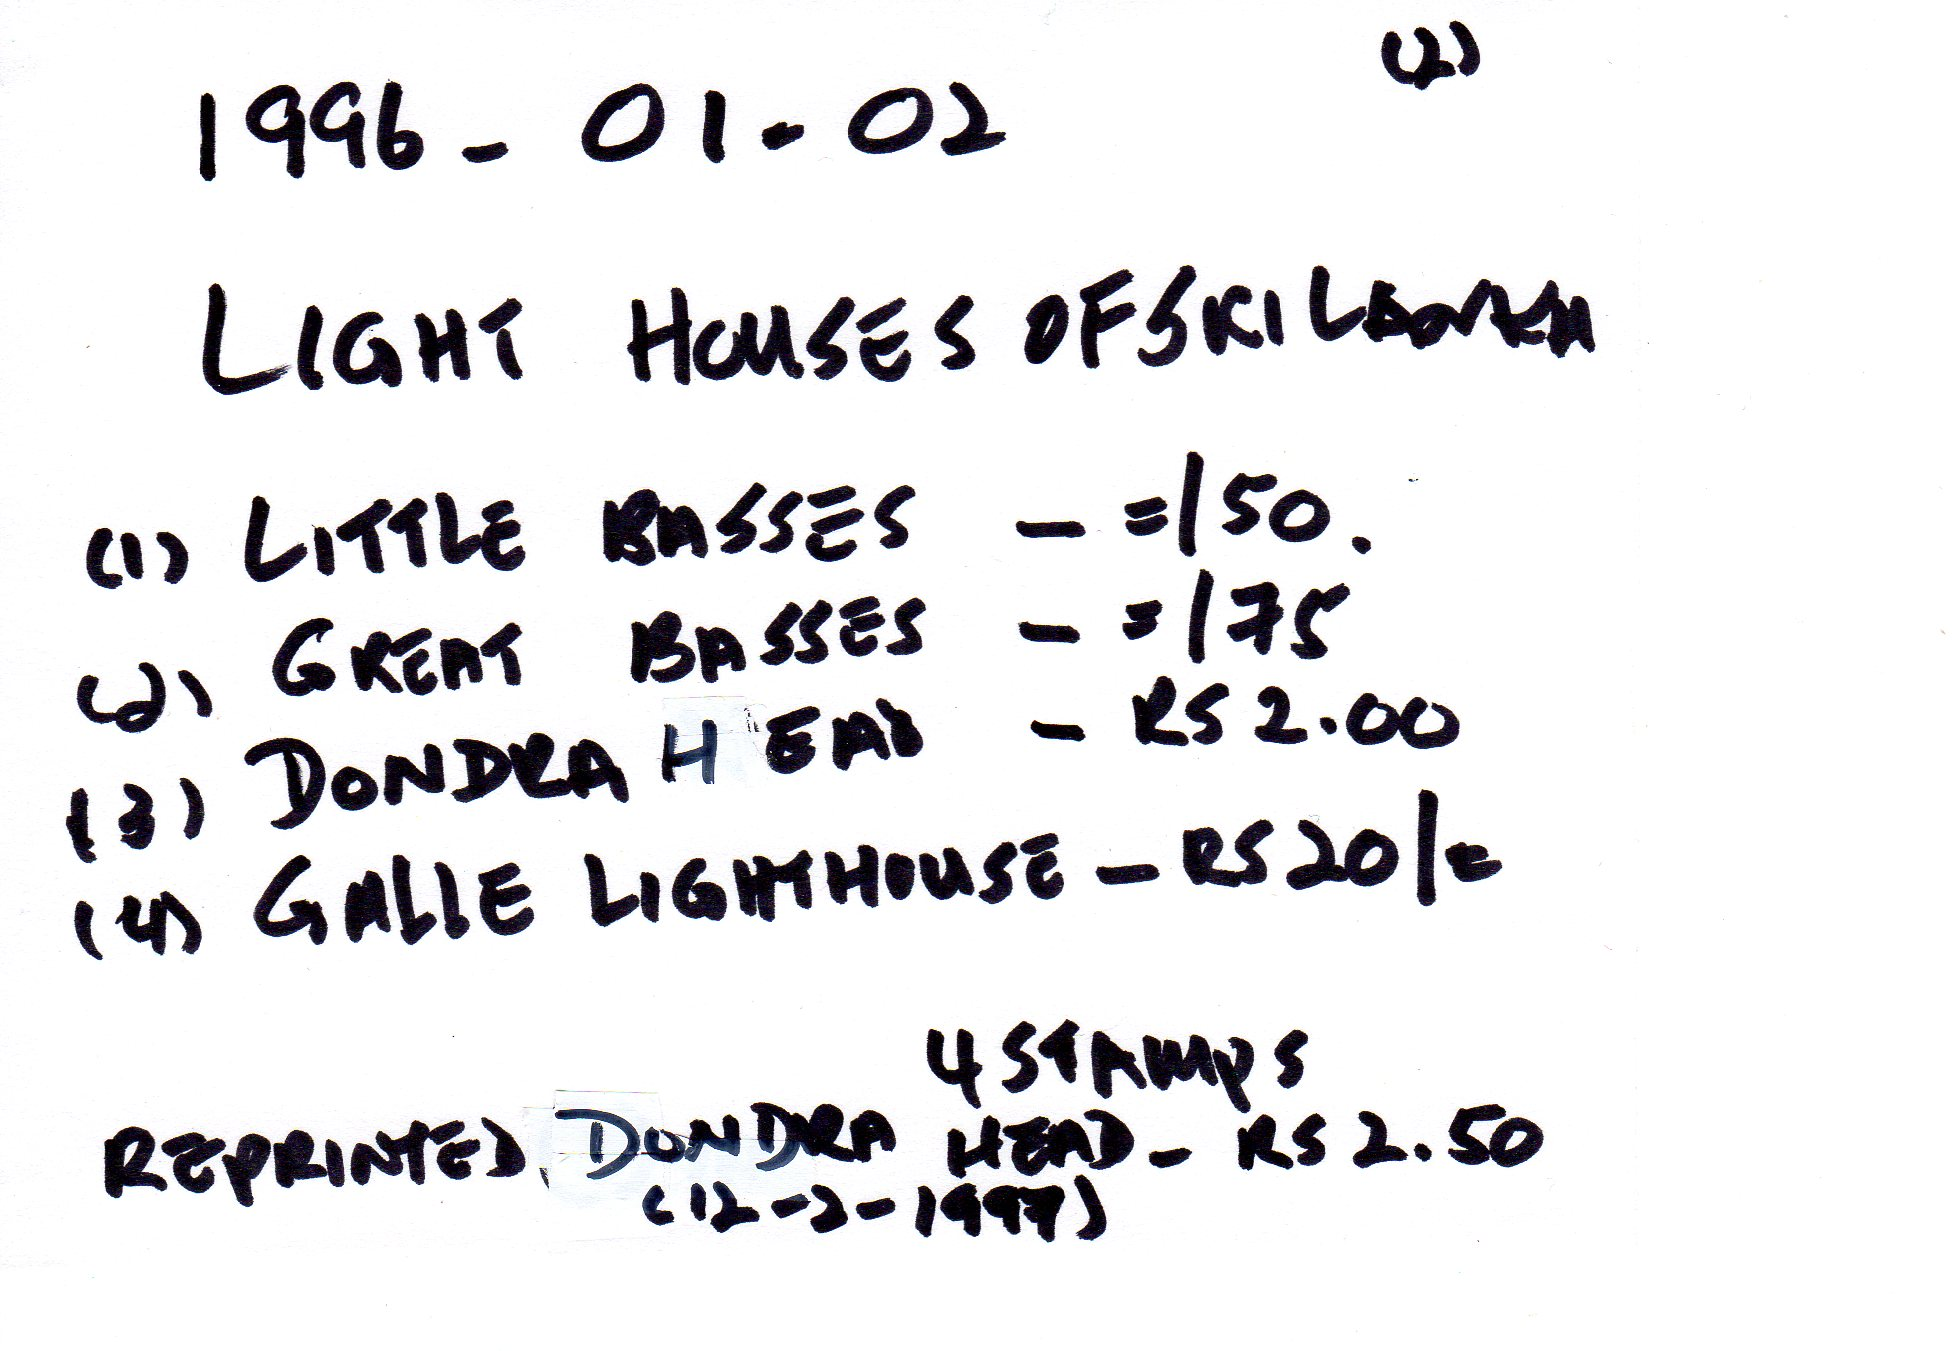 (2)
1996 - 01 - 02
LIGHT HOUSES OF SRI LANKA
(1) LITTLE BASSES - =/50.
(2) GREAT BASSES - =/75
(3) DONDRA HEAD - RS 2.00
(4) GALLE LIGHTHOUSE - RS 20/=
4 STAMPS
REPRINTED DONDRA HEAD - RS 2.50
(12-2-1997)